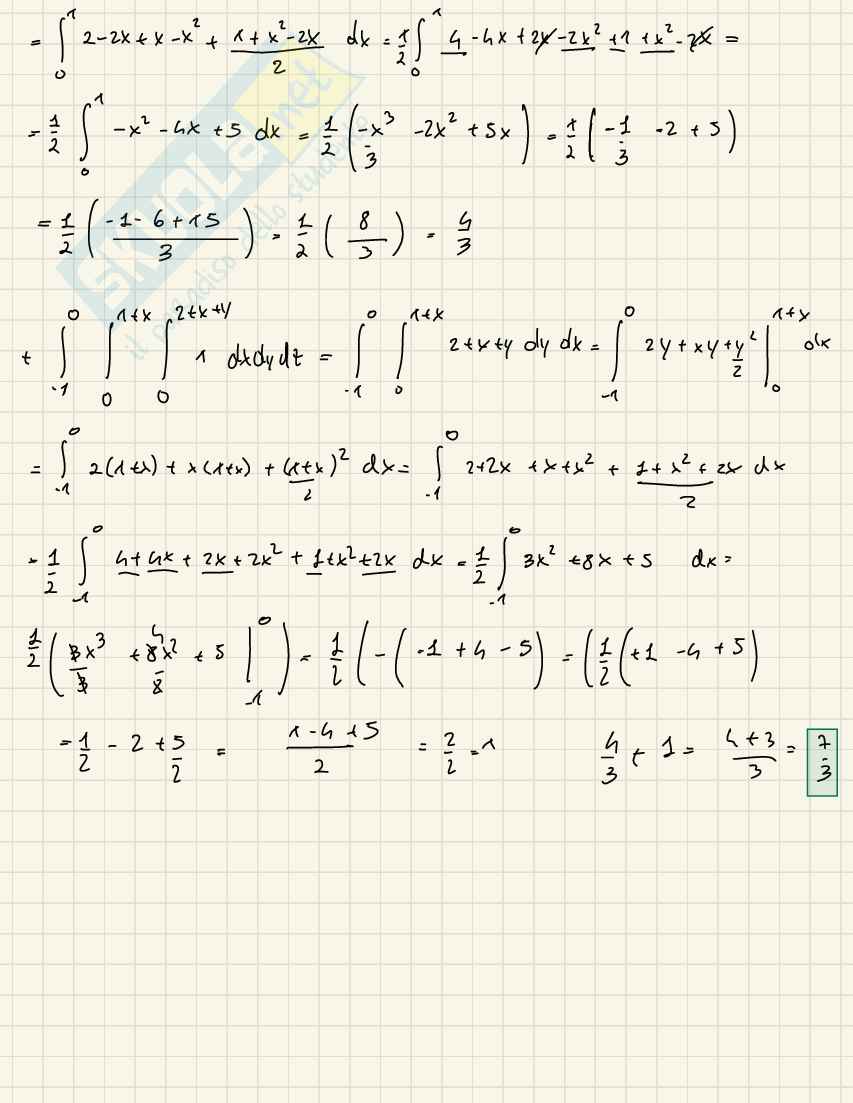 = ∫₀¹ 2-2x+x-x² + (1+x²-2x)/2 dx = 1/2 ∫₀¹ 4-4x+2x-2x²+1+x²-2x =
= 1/2 ∫₀¹ -x²-4x+5 dx = 1/2 (-x³/3 -2x²+5x) = 1/2 (-1/3 -2+5)
= 1/2 ((-1-6+15)/3) = 1/2 (8/3) = 4/3
+ ∫₋₁⁰ ∫₀^(1+x) ∫₀^(2+x+y) 1 dxdydz = ∫₋₁⁰ ∫₀^(1+x) 2+x+y dy dx = ∫₋₁⁰ 2y+xy+y²/2 |₀^(1+x) dx
= ∫₋₁⁰ 2(1+x)+x(1+x)+(1+x)²/2 dx = ∫₋₁⁰ 2+2x+x+x² + (1+x²+2x)/2 dx
= 1/2 ∫₋₁⁰ 4+4x+2x+2x²+1+x²+2x dx = 1/2 ∫₋₁⁰ 3x²+8x+5 dx =
1/2 (3x³/3 + 8x²/2 + 5 |₋₁⁰) = 1/2 (-(-1+4-5) = (1/2 (+1-4+5)
= 1/2 - 2 + 5/2 = (1-4+5)/2 = 2/2 = 1 4/3 + 1 = (4+3)/3 = 7/3
SKUOLA.net
il paradiso dello studente